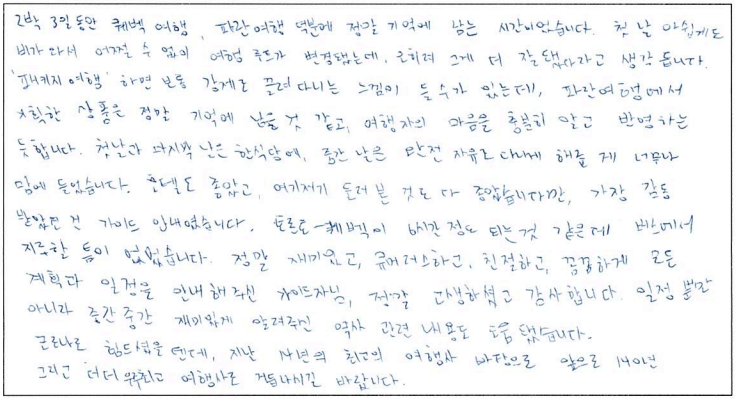 2박 3일동안 퀘벡 여행, 파란여행 덕분에 정말 기억에 남는 시간이었습니다. 첫 날 아쉽게도
비가와서 어쩔 수 없이 여행 루트가 변경됐는데, 오히려 그게 더 잘됐다라고 생각 듭니다.
'패키지여행' 하면 보통 강제로 끌려다니는 느낌이 들수가 있는데, 파란여행에서
계획한 상품은 정말 기억에 남을 것 같고, 여행자의 마음을 충분히 알고 반영하는
듯합니다. 첫날과 마지막 날은 한식당에, 중간 날은 완전 자유로 다니게 해줄 게 너무나
맘에 들었습니다. 호텔도 좋았고, 여기저기 둘러본 것도 다 좋았습니다만, 가장 감동
받았던 건 가이드 안내였습니다. 토론토-퀘벡이 6시간 정도 되는것 같은데 버스에서
지루할 틈이 없었습니다. 정말 재미있고, 유머러스하고, 친절하고, 꼼꼼하게 모든
계획과 일정을 안내해주신 가이드님, 정말 고생하셨고 감사합니다. 일정 뿐만
아니라 중간중간 재미있게 알려주신 역사 관련 내용도 도움 됐습니다.
코로나로 힘드셨을텐데, 지난 14년의 최고의 여행사 바탕으로 앞으로 140년
그리고 더더욱 최고 여행사로 거듭나시길 바랍니다.